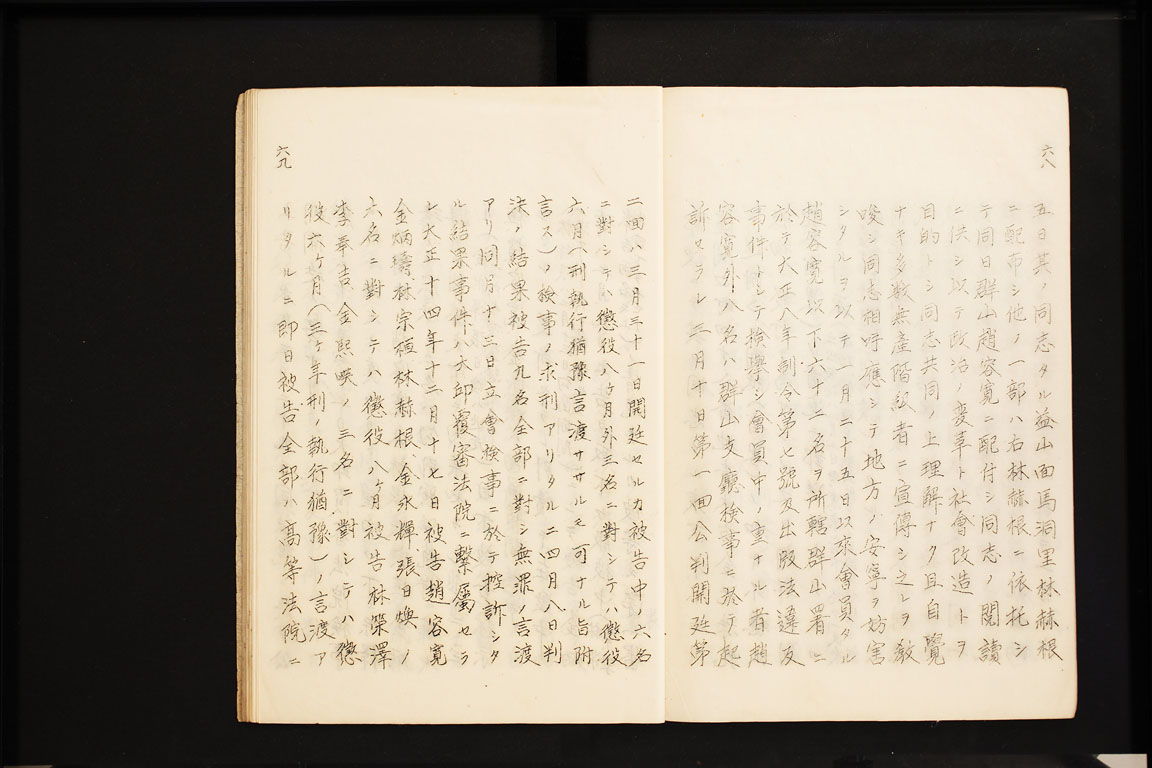 六八
五日其ノ同志タル益山面馬洞里林赫根
ニ配布シ他ノ一部ハ右林赫根ニ依托シ
テ同日群山趙容寛ニ配付シ同志ノ閲讀
ニ供シ以テ政治ノ変革ト社會改造トヲ
目的トシ同志共同ノ上理解ナク且自覺
ナキ多数無産階級者ニ宣傳シ之レヲ教
唆シ同志相呼應シテ地方ノ安寧ヲ妨害
シタルヲ以テ一月二十五日以來會員タル
趙容寛以下六十二名ヲ所轄群山署ニ
於テ大正八年制令第七號及出版法違反
事件トシテ検擧シ會員中ノ重ナル者趙
容寛外八名ハ群山支廳検事ニ於テ起
訴セラレ三月十日第一回公判開廷第
六九
二回ハ三月三十一日開廷セルカ被告中ノ六名
ニ對シテハ懲役八ヶ月外三名ニ對シテハ懲役
六月(刑執行猶豫言渡サザルモ可ナル旨附
言ス)ノ検事ノ求刑アリタルニ四月八日判
決ノ結果被告九名全部ニ對シ無罪ノ言渡
アリ同月十三日立會検事ニ於テ控訴シタ
ル結果事件ハ大邱覆審法院ニ繋屬セラ
レ大正十四年十二月十七日被告趙容寛
金炳璹、林宗桓、林赫根、金永輝、張日煥ノ
六名ニ對シテハ懲役八ヶ月被告林榮澤
李奉吉、金熙暎ノ三名ニ對シテハ懲
役六ヶ月(三ヶ年刑ノ執行猶豫)ノ言渡ア
リタルニ即日被告全部ハ高等法院ニ